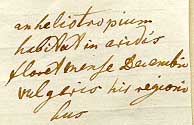 an heliotropium
habitat in aridis
floret mense Decembri
vulgaris his regioni
bus